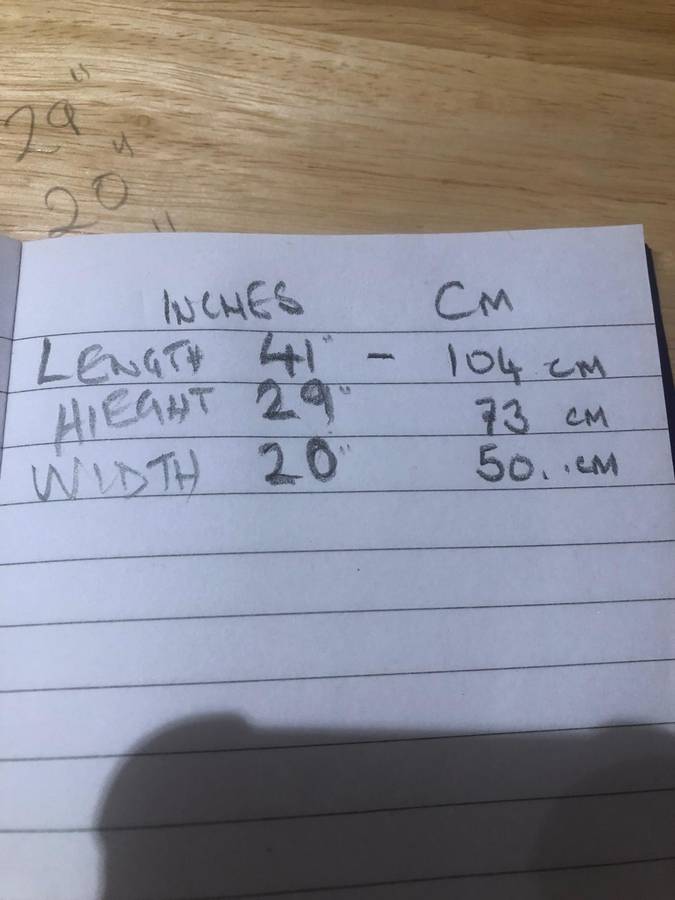 29"
20"
"
INCHES CM
LENGTH 41" - 104 CM
HIEGHT 29" 73 CM
WIDTH 20" 50.. CM